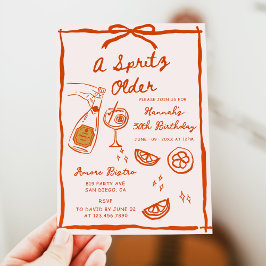 A Spritz
Older
PLEASE JOIN US FOR
Hannah's
30th Birthday
JUNE · 09 · 20XX AT 7PM
Amore Bistro
819 PARTY AVE
SAN DIEGO, CA
RSVP
TO DAVID BY JUNE 02
AT 123.456.7890